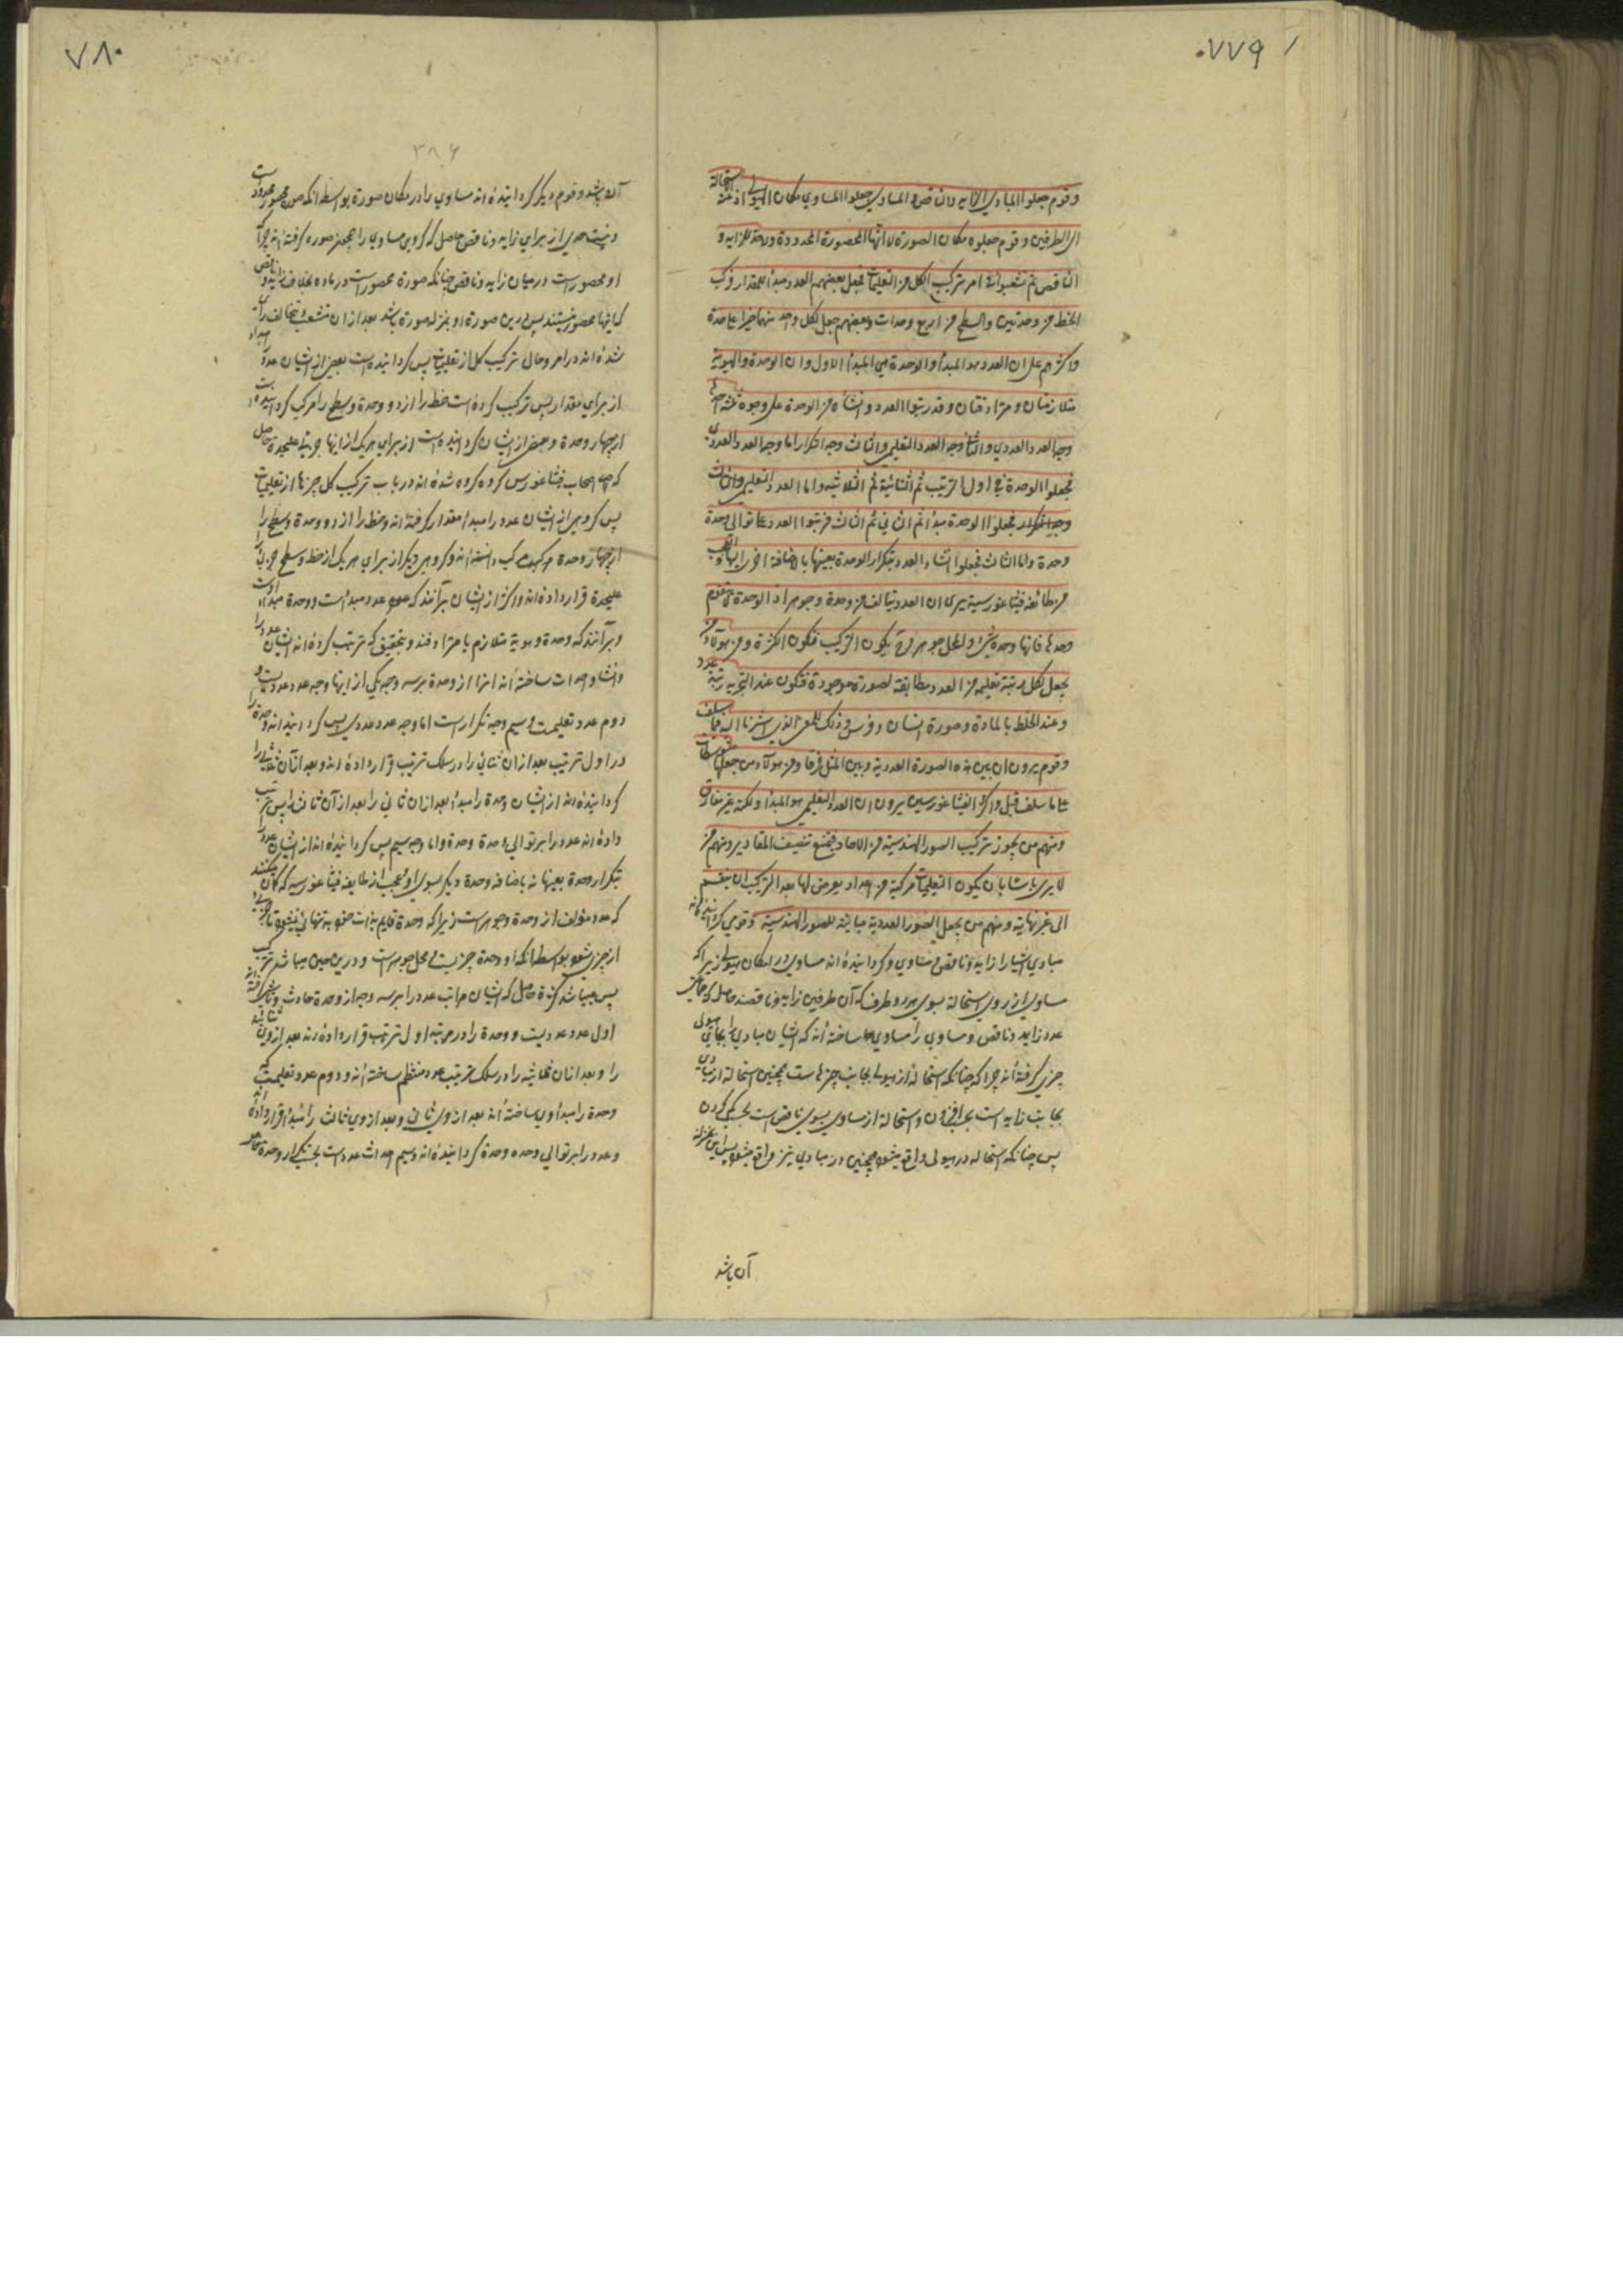 ٧٧٩
وقوم جعلوا المبادي الزايد والناقص والمساوي جعلوا المساوي مكان الهيولى اذ عنه استحالة
الى الطرفين وقوم جعلوه مكان الصورة لانها المحصورة المحدودة ولا حد للزايد و
الناقص ثم تشعبوا في امر تركيب الكل من التعليميات فجعل بعضهم العدد مبدأ للمقدار فركب
الخط من وحدتين والسطح من اربع وحدات وبعضهم جعل لكل واحد منها حيزا على حدة
واكثرهم على ان العدد هو المبدأ والوحدة هي المبدأ الاول وان الوحدة والهوية
متلازمتان ومترادفتان وقد رتبوا العدد وانشأه من الوحدة على وجوه ثلثة احدها
وجه العدد العددي والثاني وجه العدد التعليمي والثالث وجه التكرار اما وجه العدد العددي
فجعلوا الوحدة في اول الترتيب ثم الثنائية ثم الثلاثية واما العدد التعليمي
فجعلوا الوحدة مبدأ ثم الثاني ثم الثالث فرتبوا العدد على توالي وحدة
وحدة واما الثالث فجعلوا انشاء العدد بتكرار الوحدة بعينها لا باضافة اخرى اليها والعجب
من طائفة فيثاغورسية يرى ان العدد يتألف من وحدة وجوهر اذ الوحدة لا تقوم
وحدها فانها وحدة شيء والمحل جوهر وح يكون التركيب فتكون الكثرة ومن هؤلاء من
يجعل لكل رتبة تعليمية من العدد مطابقة لصورة موجودة فتكون عند التجريد رتبة عدد
وعند الخلط بالمادة وصورة انسان وفرس وذلك للمعنى الذي اشرنا اليه فيما سلف
وقوم يرون ان بين هذه الصورة العددية وبين المثل فرقا ومن هؤلاء من جعلها متوسطات
على ما سلف قبل واكثر الفيثاغورسيين يرون ان العدد التعليمي هو المبدأ ولكنه غير مفارق
ومنهم من يجوز تركيب الصور الهندسية من الاحاد فيمتنع تنصيف المقادير ومنهم من
لا يرى بأسا بان يكون التعليميات مركبة من اعداد يعرض لها بعد التركيب ان ينقسم
الى غير نهاية ومنهم من يجعل الصور العددية مباينة للصور الهندسية وقومي گردانيده اند
مبادي اشيا را زايد وناقص و مساوي وگردانيده اند مساوي در مكان هيولى زيرا كه
مساوي از روي استحاله بسوي هر دو طرف كه آن طرفين زايد وناقصند حاصل كه
عدد زايد وناقص ومساوي را مبادي ساخته اند كه ايشان مبادي را بجاي هيولى
چيزي گرفته اند چرا كه چنانكه استحاله از هيولى بجانب چيزها ست همچنين استحاله از مبادي
بجانب زايد است بجز افزودن واستحاله از مساوي بسوي ناقص است بحسب كم كردن
پس چنانكه استحاله در هيولى واقع ميشود همچنين در مبادي نيز واقع ميشود پس اين بمنزله
آن باشد
٧٨٠
٣٨٦
آن باشد وقوم ديگر گردانيده اند مساوي را در مكان صورة بواسطه انكه صورة محصور محدودست
ونيست حدي از براي زايد وناقص حاصل كه گروهي مساوي را بمنزله صورة گرفته اند چرا كه
او محصورست در ميان زايد وناقص چنانكه صورة محصورست در ماده بخلاف زايد وناقص
كه اينها محصور نيستند پس درين صورة او بمنزله صورة باشد بعد ازان متشعب و متخالف راي
شده اند در امر وحال تركيب كل از تعليميات پس گردانيده است بعضي از ايشان عدد را مبدأ
از براي مقدار پس تركيب كرده است خط را از دو وحدة وسطح را مركب گردانيده است
از چهار وحدة وبعضي از ايشان گردانيده است از براي هر يك از اينها حيز عليحده حاصل
كه اصحاب فيثاغورس گروه گروه شده اند در باب تركيب كل چيزها از تعليميات
پس گروهي از ايشان عدد را مبدأ مقدار گرفته اند وخط را از دو وحدة وسطح را
از چهار وحدة مركب دانسته اند وگروهي ديگر از براي هر يك از خط وسطح حيزي
عليحدة قرار داده اند واكثر از ايشان برآنند كه عدد مبدأ است ووحدة مبدأ اول است
وبرآنند كه وحدة وهوية متلازم يا مترادفند وبتحقيق كه ترتيب كرده اند ايشان عدد را
وانشا واحداث ساخته اند انرا از وحدة بر سه وجه يكي از اينها وجه عدد عدديست و
دوم عدد تعليميست وسيم وجه تكرارست اما وجه عدد عددي پس گردانيده اند وحدة را
در اول ترتيب بعد ازان ثنائي را در سلك ترتيب قرار داده اند وبعد ازان ثلاثي را
گردانيده اند از ايشان وحدة را مبدأ بعد ازان ثاني را بعد از آن ثالث را پس ترتيب
داده اند عدد را بر توالي وحدة وحدة واما وجه سيم پس گردانيده اند از ايشان عدد را
بتكرار وحدة بعينها نه باضافه وحدة ديگر بسوي او وعجب از طايفه فيثاغورسيه كه گمان ميكنند
كه عدد مؤلف از وحدة وجوهر است زيرا كه وحدة قايم بذات خود به تنهائي نميشود
از چيزي بواسطه انكه او وحدة چيزيست ومحل جوهر است ودرين حين ميباشد تركيب
پس ميباشد كثرة حاصل كه ايشان مراتب عدد را بر سه وجه از وحدة حادث
اول عدد عدديست ووحدة را در مرتبه اول ترتيب قرار داده اند بعد ازوي ثنائيه
را وبعد ازان ثلاثيه را در سلك ترتيب عدد منتظم ساخته اند ودوم عدد تعليميست كه
وحدة را مبدأ وي ساخته اند بعد ازوي ثاني وبعد ازوي ثالث را مبدأ قرار داده اند
وعدد را بر توالي وحده وحدة گردانيده اند وسيم احداث عددست بحسب تكرار وحدة